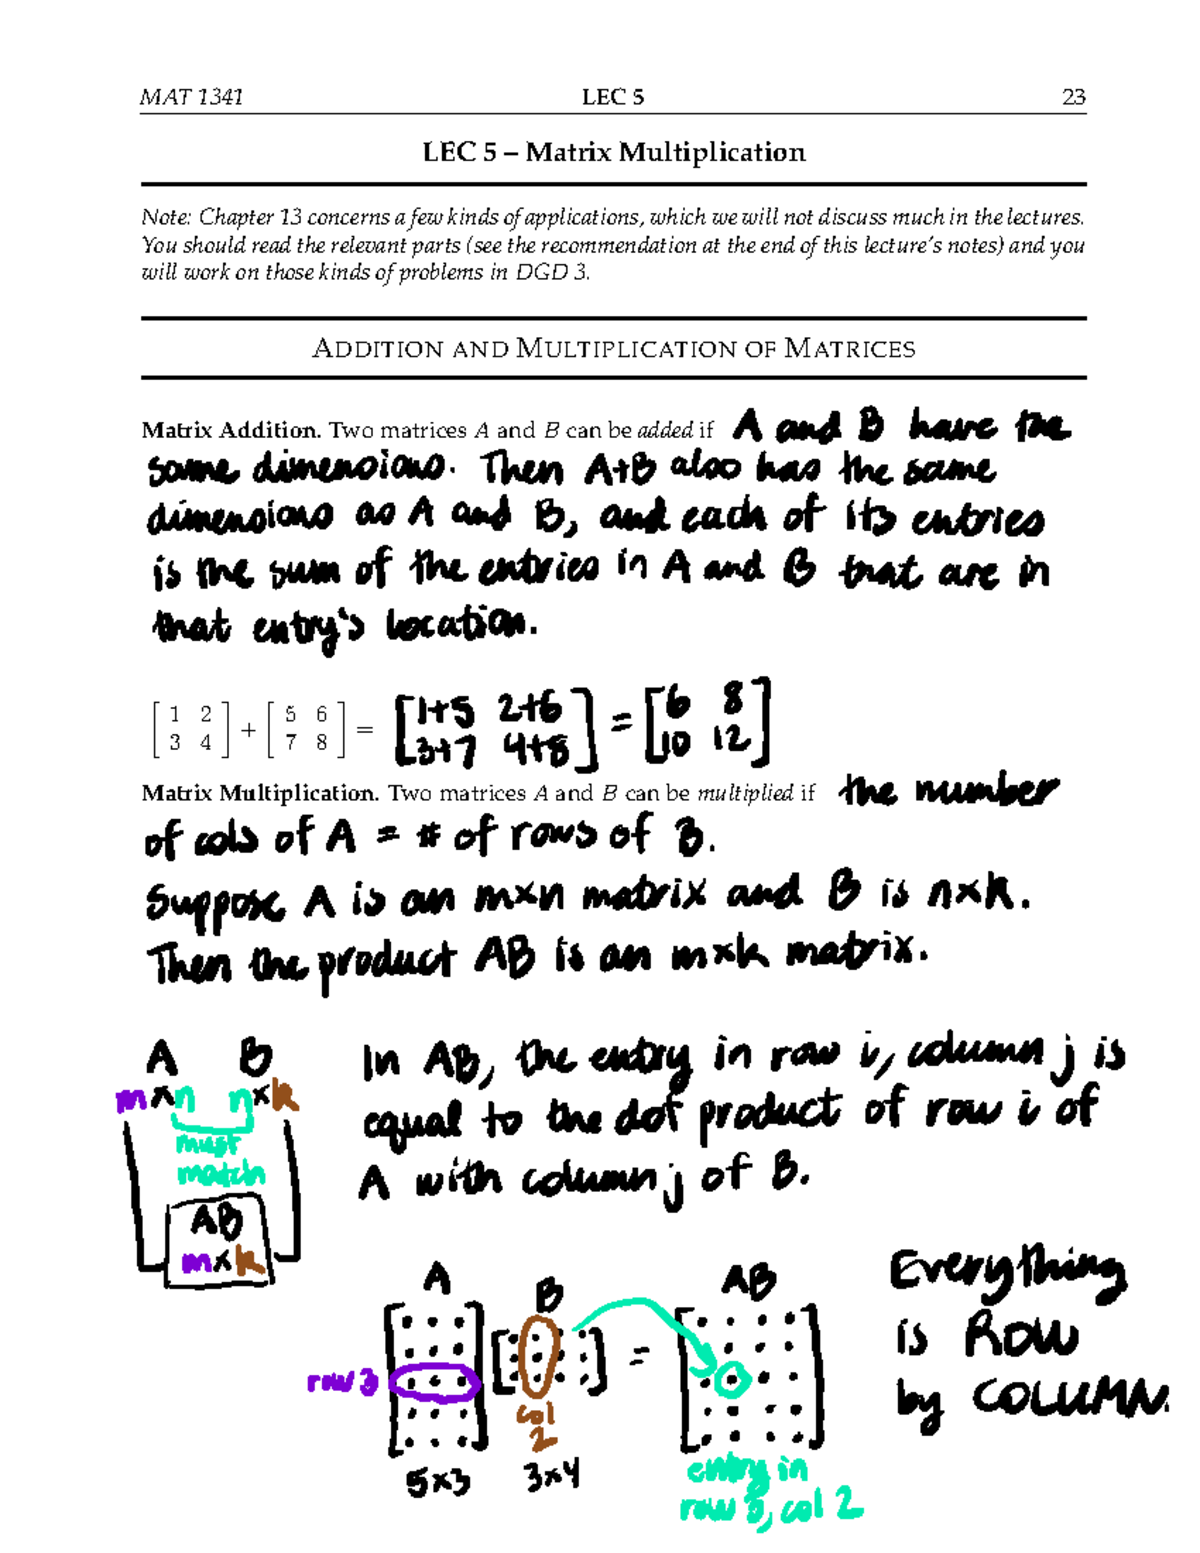 MAT 1341 LEC 5 23
LEC 5 – Matrix Multiplication
Note: Chapter 13 concerns a few kinds of applications, which we will not discuss much in the lectures.
You should read the relevant parts (see the recommendation at the end of this lecture's notes) and you
will work on those kinds of problems in DGD 3.
ADDITION AND MULTIPLICATION OF MATRICES
Matrix Addition. Two matrices A and B can be added if A and B have the
same dimensions. Then A+B also has the same
dimensions as A and B, and each of its entries
is the sum of the entries in A and B that are in
that entry's location.
[1 2] + [5 6] = [1+5 2+6] = [6 8]
[3 4] [7 8] [3+7 4+8] [10 12]
Matrix Multiplication. Two matrices A and B can be multiplied if the number
of cols of A = # of rows of B.
Suppose A is an m×n matrix and B is n×k.
Then the product AB is an m×k matrix.
A B
m×n n×k
must
match
AB
m×k
In AB, the entry in row i, column j is
equal to the dot product of row i of
A with column j of B.
A B AB
row 3
col
2
=
5×3 3×4
entry in
row 3, col 2
Everything
is ROW
by COLUMN.